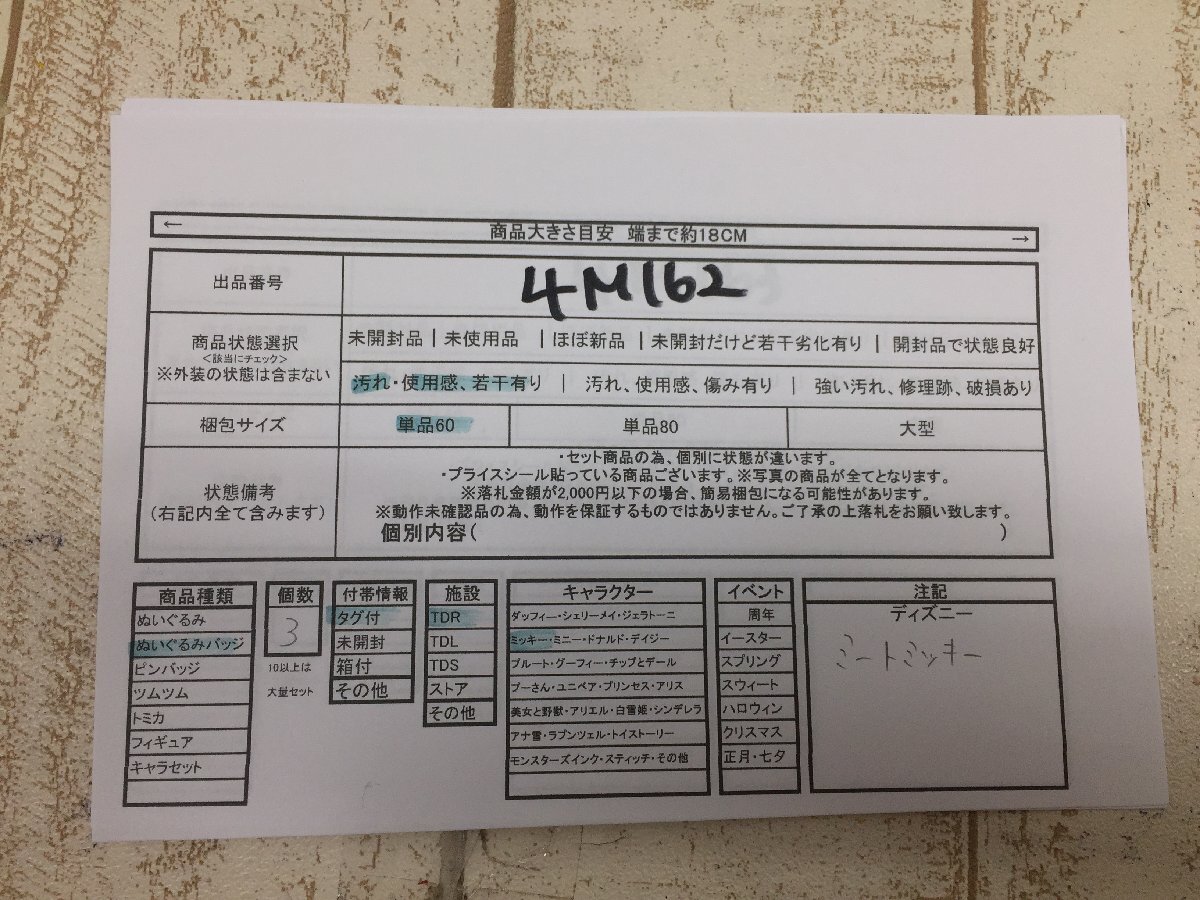 ← 商品大きさ目安 端まで約18CM →
出品番号 4M162
商品状態選択
<該当にチェック>
※外装の状態は含まない
未開封品 | 未使用品 | ほぼ新品 | 未開封だけど若干劣化有り | 開封品で状態良好
汚れ・使用感、若干有り | 汚れ、使用感、傷み有り | 強い汚れ、修理跡、破損あり
梱包サイズ 単品60 単品80 大型
状態備考
(右記内全て含みます)
・セット商品の為、個別に状態が違います。
・プライスシール貼っている商品ございます。※写真の商品が全てとなります。
※落札金額が2,000円以下の場合、簡易梱包になる可能性があります。
※動作未確認品の為、動作を保証するものではありません。ご了承の上落札をお願い致します。
個別内容( )
商品種類
ぬいぐるみ
ぬいぐるみバッジ
ピンバッジ
ツムツム
トミカ
フィギュア
キャラセット
個数
3
10以上は
大量セット
付帯情報
タグ付
未開封
箱付
その他
施設
TDR
TDL
TDS
ストア
その他
キャラクター
ダッフィー・シェリーメイ・ジェラトーニ
ミッキー・ミニー・ドナルド・デイジー
プルート・グーフィー・チップとデール
プーさん・ユニベア・プリンセス・アリス
美女と野獣・アリエル・白雪姫・シンデレラ
アナ雪・ラプンツェル・トイストーリー
モンスターズインク・スティッチ・その他
イベント
周年
イースター
スプリング
スウィート
ハロウィン
クリスマス
正月・七夕
注記
ディズニー
ミートミッキー